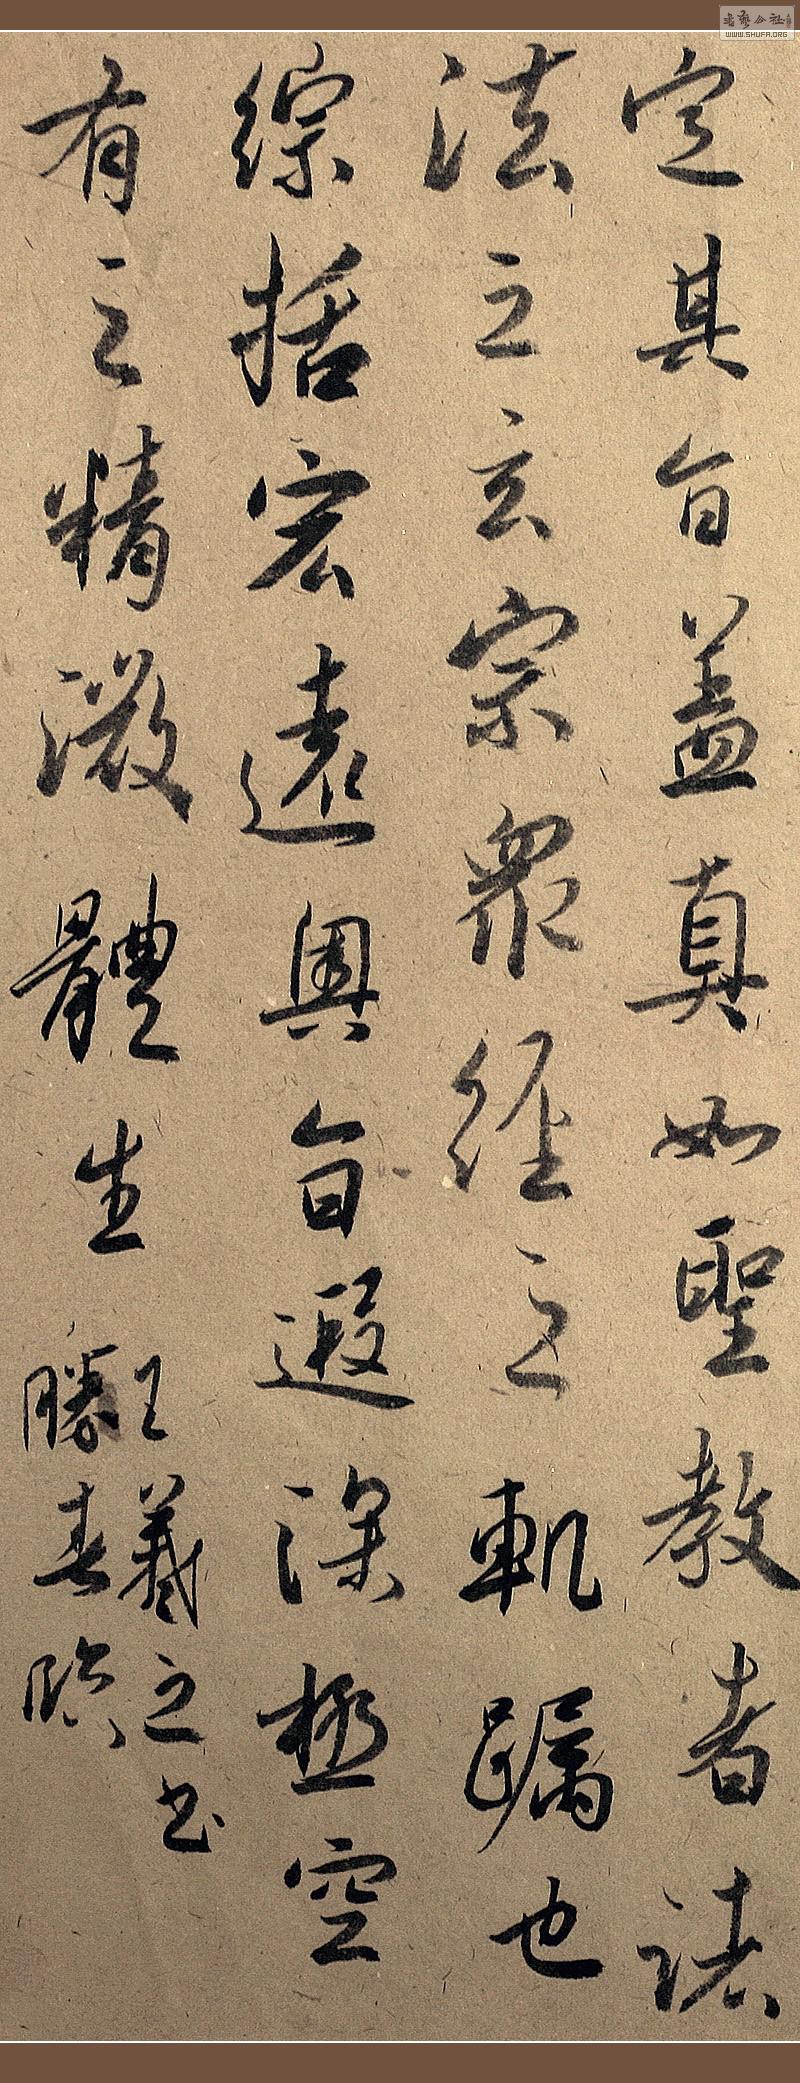 定其旨盖真如聖教者諸
法之玄宗眾經之軌躅也
綜括宏遠奧旨遐深極空
有之精微體生
王羲之书
勝春臨
WWW.SHUFA.ORG